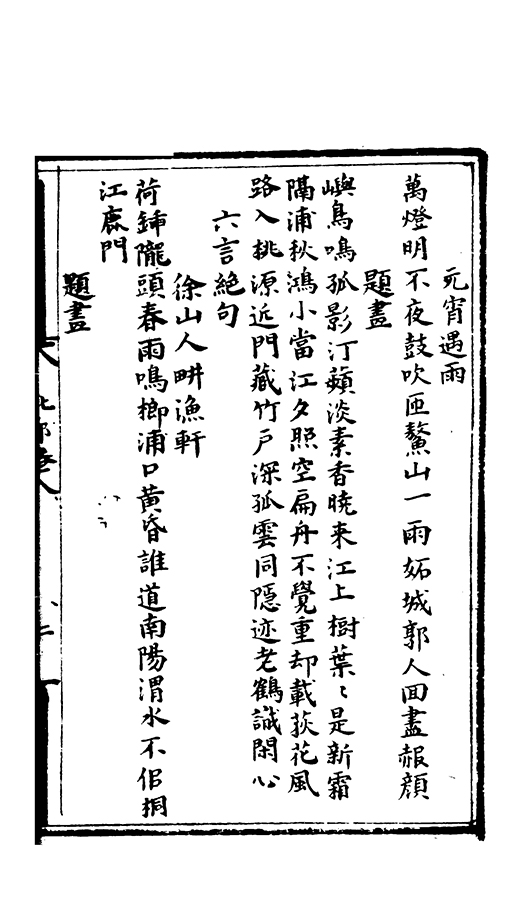 元宵遇雨
萬燈明不夜鼓吹匝鰲山一雨妬城郭人回盡赧顏
題畫
嶼鳥鳴孤影汀蘋淡素香曉来江上樹葉〻是新霜
隔浦秋鴻小當江夕照空扁舟不覺重却載荻花風
路入桃源近門藏竹戶深孤雲同隱迹老鶴識閑心
六言絕句
徐山人畊漁軒
荷鍤隴頭春雨鳴榔浦口黃昏誰道南陽渭水不侶桐
江鹿門
題畫